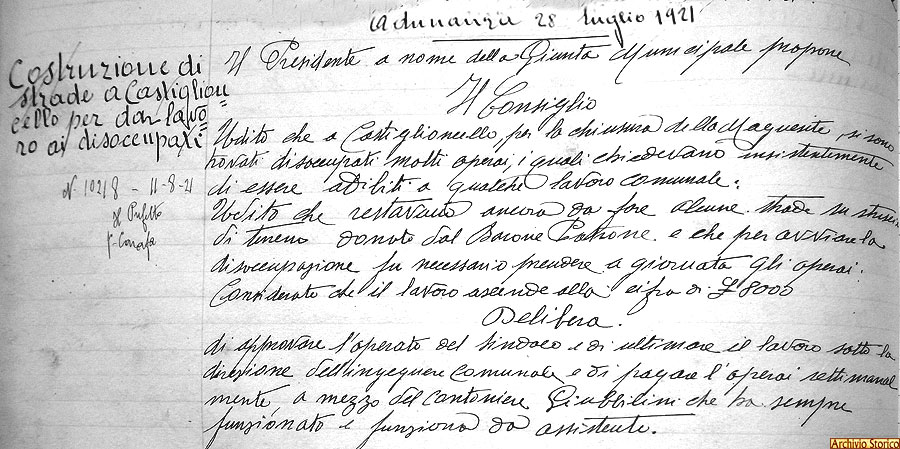 Adunanza 28 luglio 1921
Costruzione di
strade a Castiglion=
cello per dar lavo=
ro ai disoccupati
N. 10218 - 11-8-21
Il Prefetto
Il Presidente a nome della Giunta Municipale propone
Il Consiglio
Udito che a Castiglioncello, per la chiusura della Magnesite, si sono
trovati disoccupati molti operai, i quali chiedevano insistentemente
di essere adibiti a qualche lavoro comunale;
Udito che restavano ancora da fare alcune strade su striscie
di terreno donate dal Barone Patrone e che per avviare la
disoccupazione fu necessario prendere a giornata gli operai.
Considerato che il lavoro ascende alla cifra di £ 8000
Delibera.
di approvare l'operato del Sindaco e di ultimare il lavoro sotto la
direzione dell'ingegnere comunale e di pagare l'operai settimanal
mente a mezzo del cantoniere Giubbilini che ha sempre
funzionato e funziona da assistente.
Archivio Storico